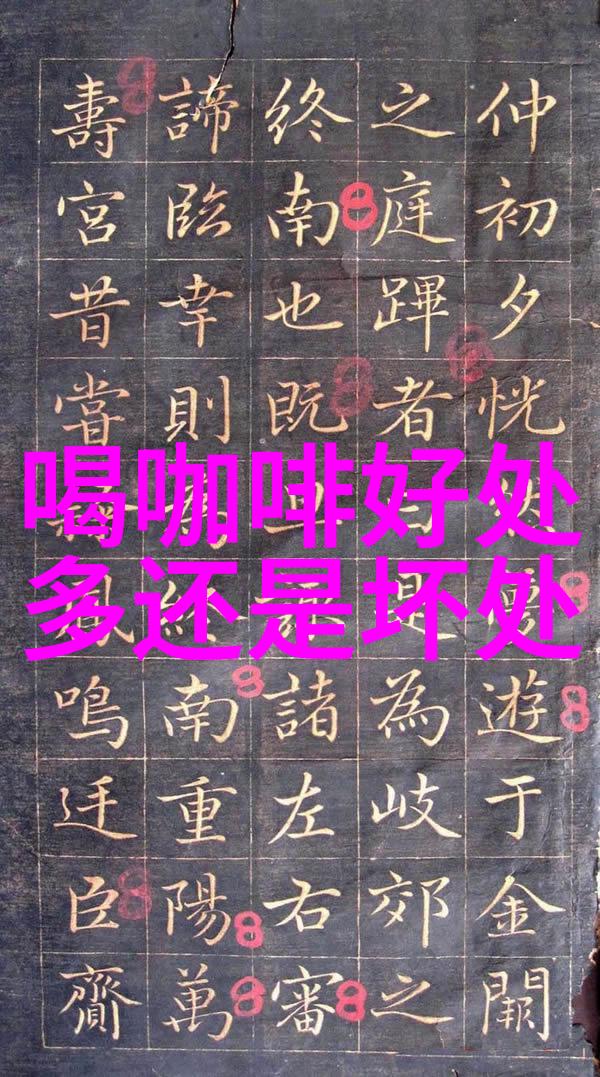 仲初夕恍遊于金闕
之庭蹕者曰是為岐郊之
終南也既諸左右審
諦臨幸則終南重陽萬
壽宮昔嘗鳳鳴廷臣齎
喝咖啡好处
多还是坏处